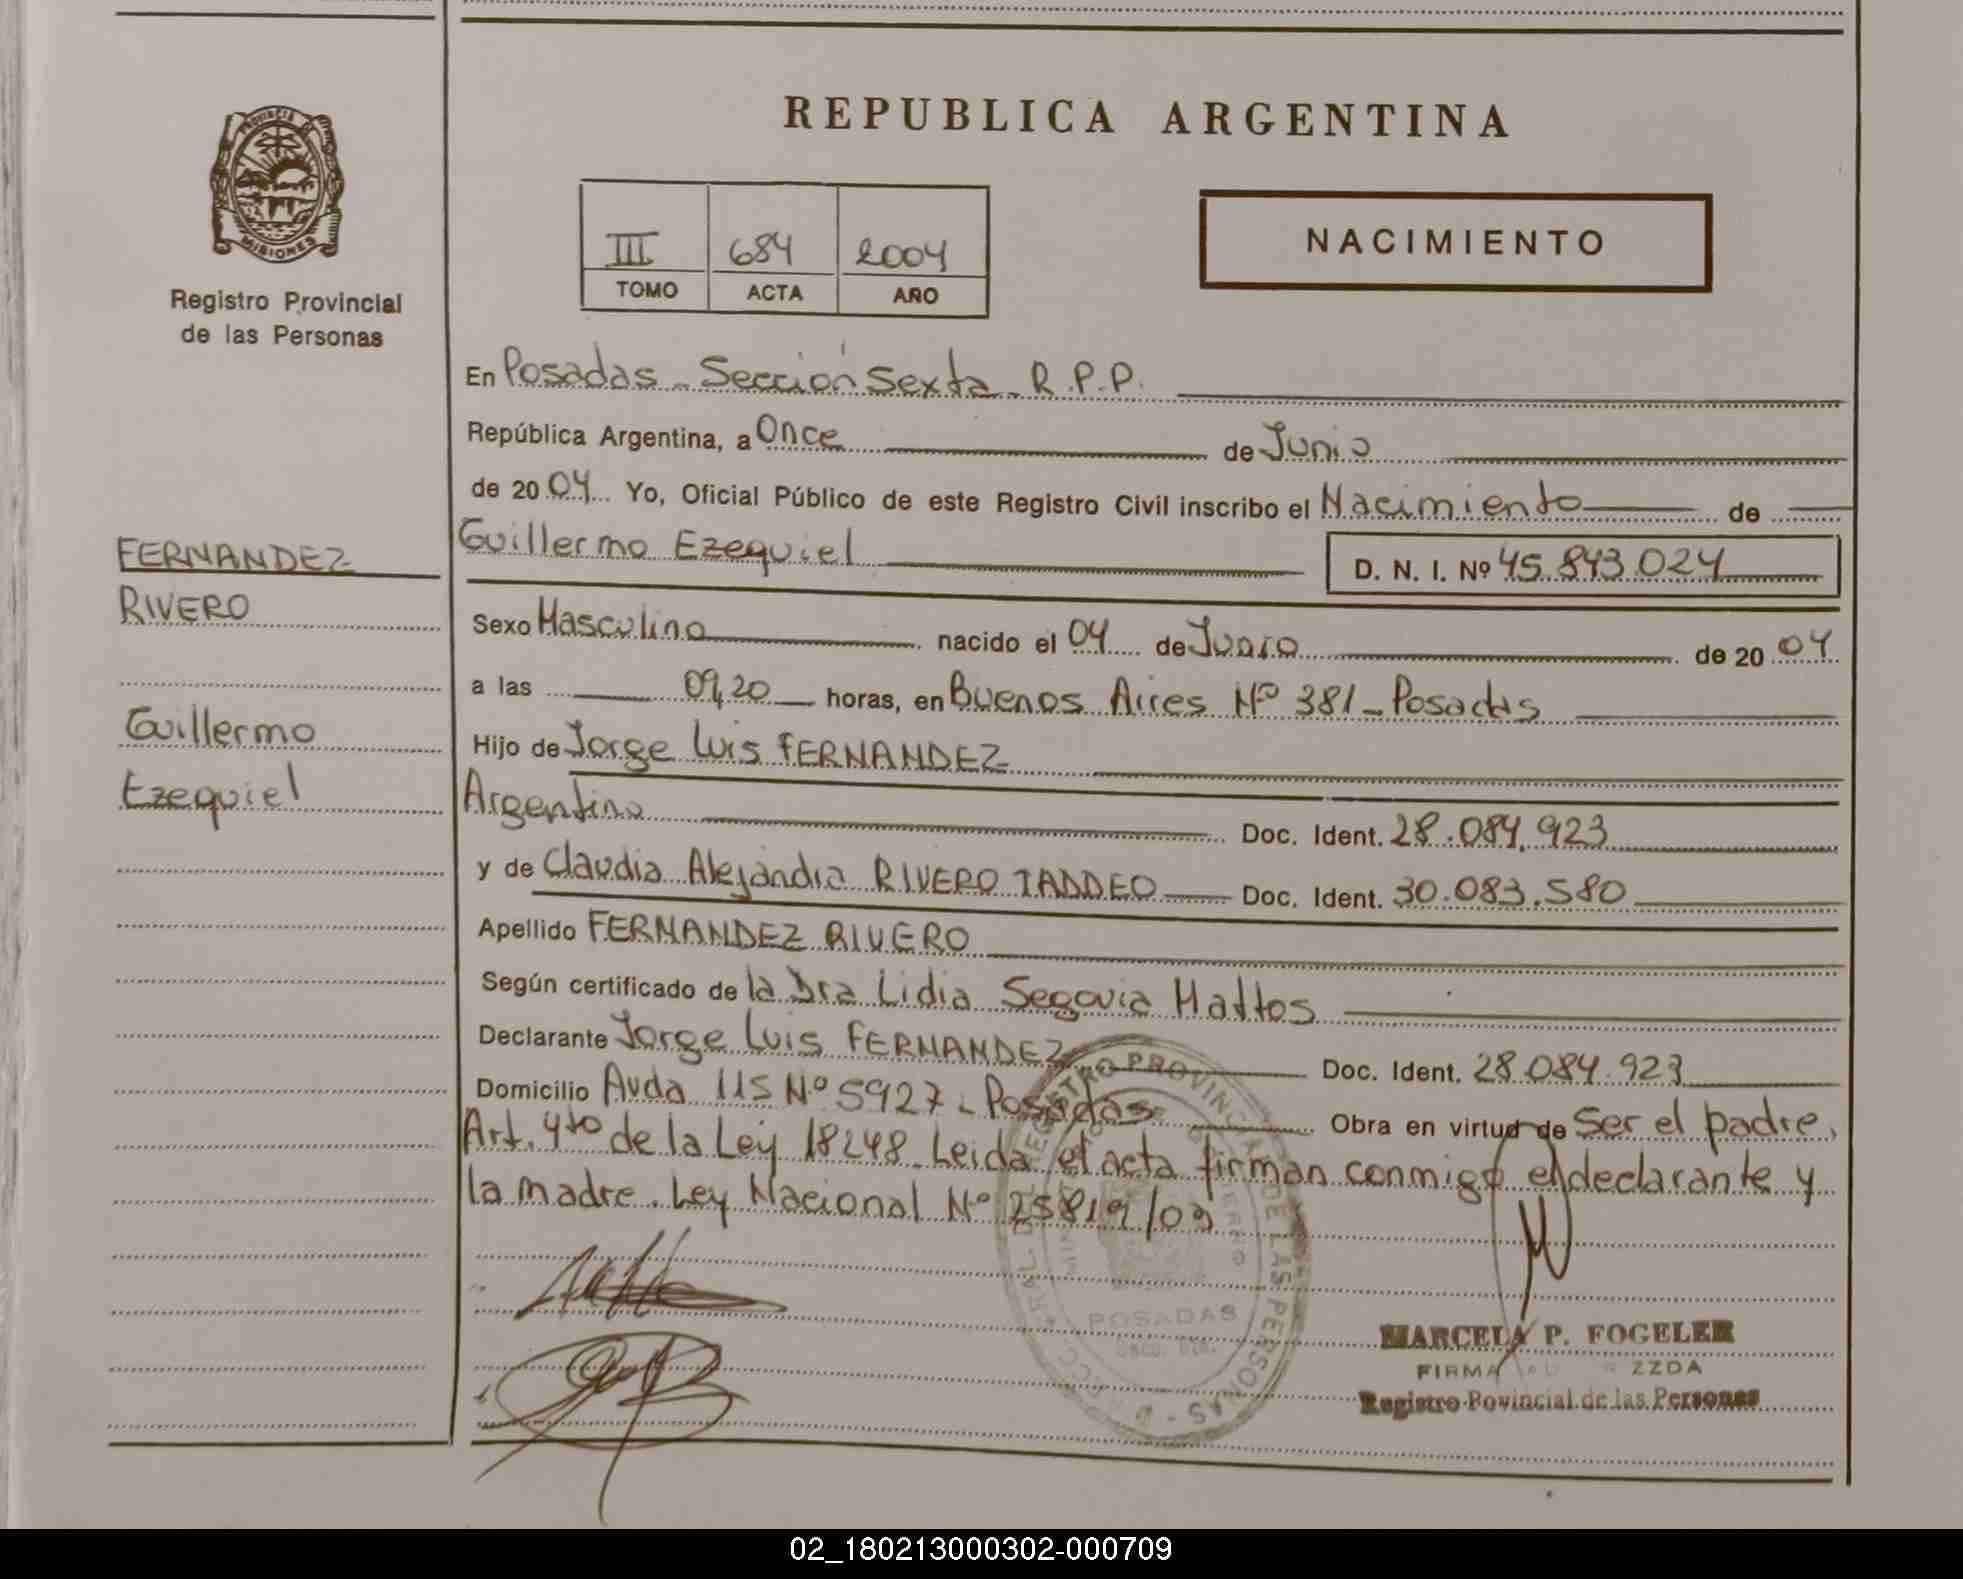 REPUBLICA ARGENTINA
PROVINCIA DE
MISIONES
Registro Provincial
de las Personas
III 684 2004
TOMO ACTA AÑO
NACIMIENTO
En Posadas - Sección Sexta - R.P.P.
República Argentina, a Once de Junio
de 20 04 Yo, Oficial Público de este Registro Civil inscribo el Nacimiento de
Guillermo Ezequiel D. N. I. Nº 45.843.024
FERNANDEZ
RIVERO
Guillermo
Ezequiel
Sexo Masculino nacido el 04 de Junio de 20 04
a las 09,20 horas, en Buenos Aires Nº 381 - Posadas
Hijo de Jorge Luis FERNANDEZ
Argentino Doc. Ident. 28.084.923
y de Claudia Alejandra RIVERO TADDEO Doc. Ident. 30.083.580
Apellido FERNANDEZ RIVERO
Según certificado de la Dra Lidia Segovia Mattos
Declarante Jorge Luis FERNANDEZ Doc. Ident. 28.084.923
Domicilio Avda 115 Nº 5927 - Posadas Obra en virtud de ser el padre,
Art. 4to de la Ley 18248. Leida el acta firman conmigo el declarante y
la madre. Ley Nacional Nº 25819/03
REGISTRO PROVINCIAL DE LAS PERSONAS
POSADAS
MARCELA P. FOGELER
FIRMA
Registro Povincial de las Personas
02_180213000302-000709